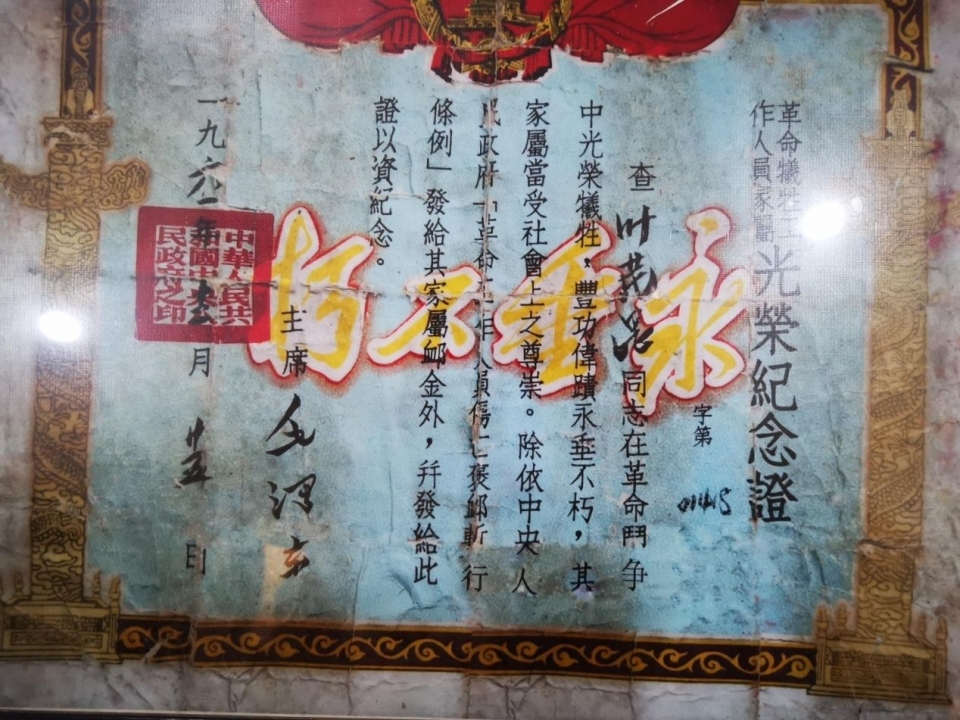 革命犧牲工
作人員家屬
光榮紀念證
字第
查叶茂同志在革命鬥争
中光榮犧牲,豐功偉蹟永垂不朽,其
家屬當受社會上之尊崇。除依中央人
民政府「革命工作人員傷亡褒卹暫行
條例」發給其家屬卹金外,幷發給此
證以資紀念。
永垂不朽
主席 毛泽东
一九六一年月廿五日
中華人民共
和國中央人
民政府之印